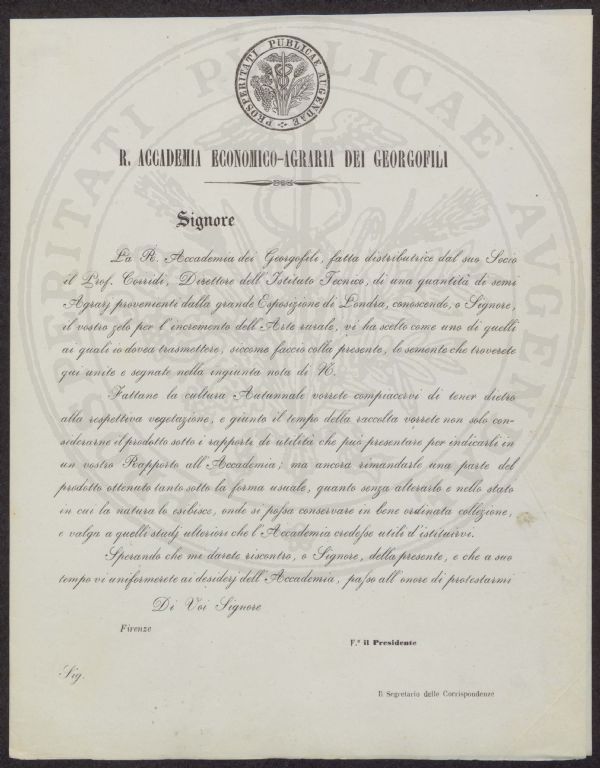 PROSPERITATI PUBLICAE AUGENDAE
R. ACCADEMIA ECONOMICO-AGRARIA DEI GEORGOFILI
Signore
La R. Accademia dei Georgofili, fatta distributrice dal suo Socio
il Prof. Corridi, Direttore dell'Istituto Tecnico, di una quantità di semi
Agrarj provenienti dalla grande Esposizione di Londra, conoscendo, o Signore,
il vostro zelo per l'incremento dell'Arte rurale, vi ha scelto come uno di quelli
ai quali io dovea trasmettere, siccome faccio colla presente, le semente che troverete
qui unite e segnate nella ingiunta nota di N.
Fattane la cultura Autunnale vorrete compiacervi di tener dietro
alla respettiva vegetazione, e giunto il tempo della raccolta vorrete non solo con-
siderarne il prodotto sotto i rapporti de utilità che può presentare per indicarli in
un vostro Rapporto all'Accademia; ma ancora rimandarle una parte del
prodotto ottenuto tanto sotto la forma usuale, quanto senza alterarlo e nello stato
in cui la natura lo esibisce, onde si possa conservare in bene ordinata collezione,
e valga a quelli studj ulteriori che l'Accademia credesse utili d'istituirvi.
Sperando che mi darete riscontro, o Signore, della presente, e che a suo
tempo vi uniformerete ai desiderj dell'Accademia, passo all'onore di protestarmi
Di Voi Signore
Firenze
F.º il Presidente
Sig.
Il Segretario delle Corrispondenze